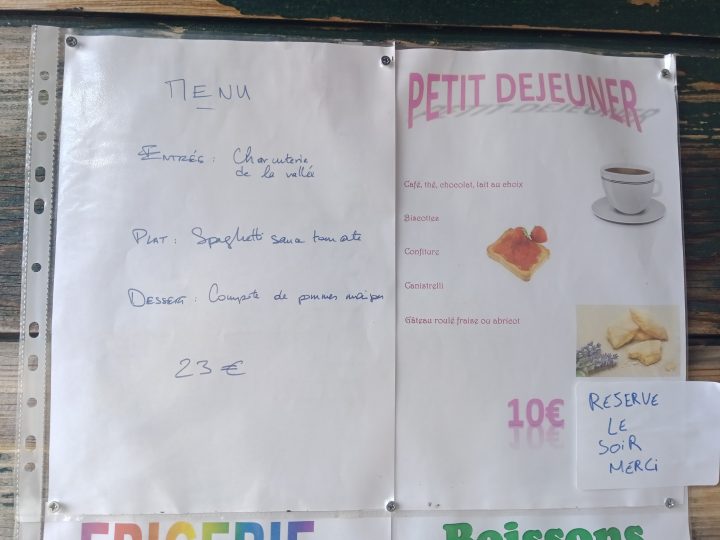 MENU
ENTRÉE : Charcuterie
de la vallée
PLAT : Spaghetti sauce tomate
DESSERT : Compote de pommes maison
23 €
PETIT DEJEUNER
Café, thé, chocolat, lait au choix
Biscottes
Confiture
Canistrelli
Gâteau roulé fraise ou abricot
10€
RESERVE
LE
SOIR
MERCI
EPICERIE
Boissons